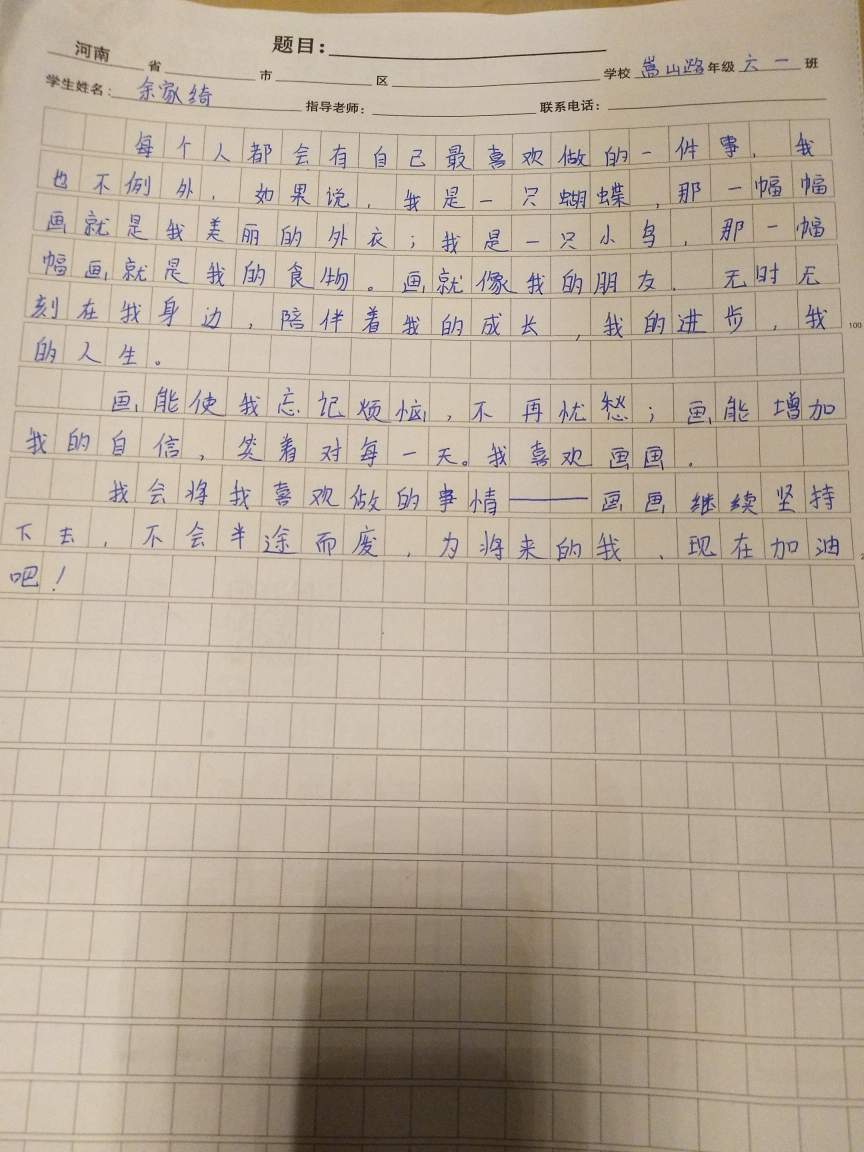 题目：
河南省 市 区 学校 嵩山路 年级 六 一 班
学生姓名：余家绮 指导老师： 联系电话：
每个人都会有自己最喜欢做的一件事，我
也不例外，如果说，我是一只蝴蝶，那一幅幅
画就是我美丽的外衣；我是一只小鸟，那一幅
幅画就是我的食物。画就像我的朋友．无时无
刻在我身边，陪伴着我的成长，我的进步，我
100
的人生。
画能使我忘记烦恼，不再忧愁；画能增加
我的自信，笑着对每一天。我喜欢画画．
我会将我喜欢做的事情——画画继续坚持
下去，不会半途而废，为将来的我、现在加油
吧！